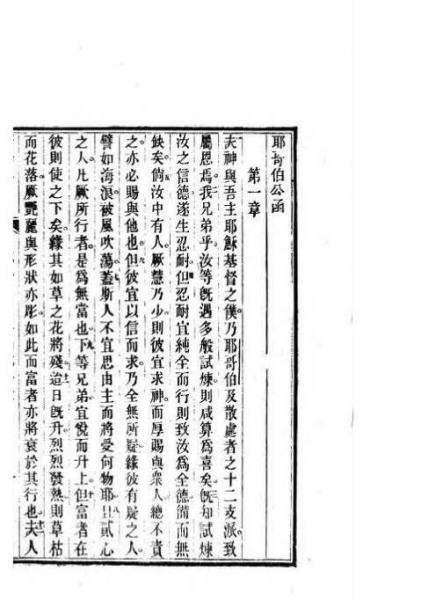 耶哥伯公函
第一章
夫神與吾主耶穌基督之僕乃耶哥伯及散處者之十二支派致
屬恩焉我兄弟乎汝等旣遇多般試煉則咸算為喜矣旣知試煉
汝之信德遂生忍耐但忍耐宜純全而行則致汝為全德備而無
缺矣倘汝中有人厥慧乃少則彼宜求神而厚賜與衆人總不責
之亦必賜與他也但彼宜以信而求乃全無所疑緣彼有疑之人
譬如海浪被風吹蕩蓋斯人不宜思由主而將愛何物耶且貳心
之人凡厥所行者是為無當也下等兄弟宜悅而升上但富者在
彼則使之下矣緣其如草之花將殘迨日旣升烈烈發熱則草枯
而花落厥艷麗與形狀亦彫如此而富者亦將衰於其行也夫人